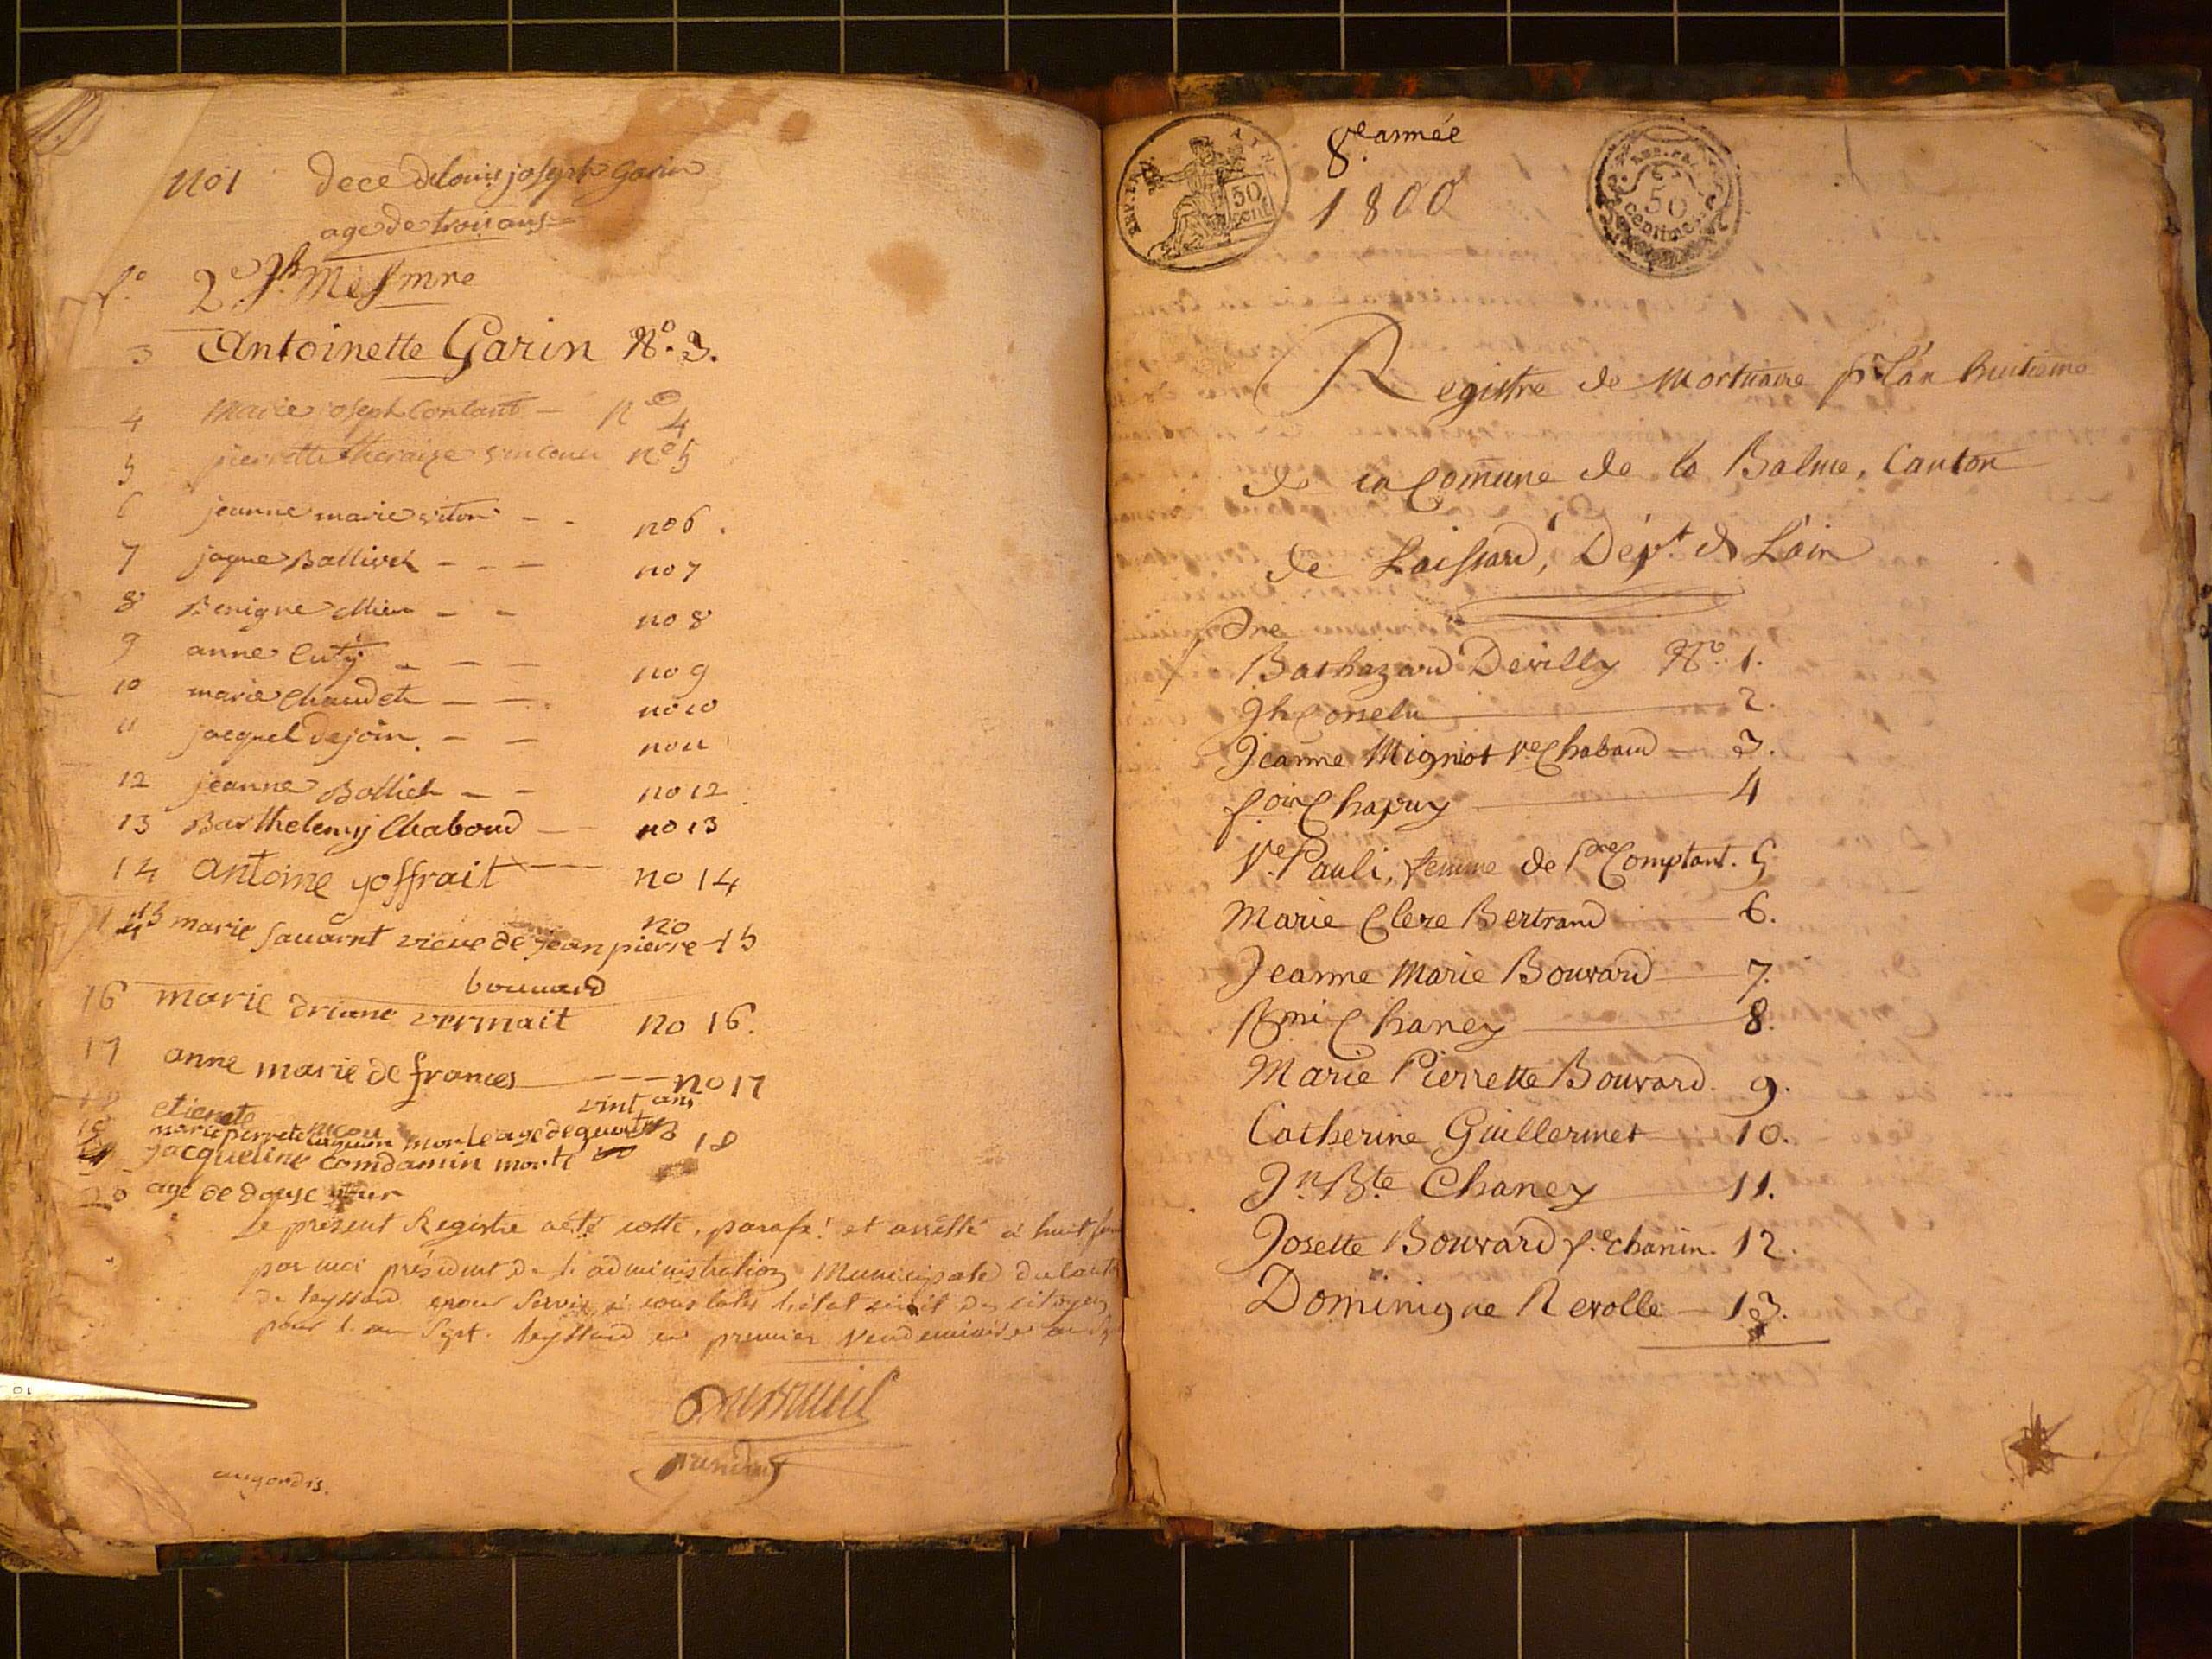 no 1 dece de louis joseph Garin
age de trois ans
2e Jh
3 Antoinette Garin No. 3.
4 Marie joseph Contant - no 4
5 pierrette no 5
6 jeanne marie - - no 6.
7 jaque Ballivet - - - no 7
8 Benigne - - no 8
9 anne Cuty - - - no 9
10 marie Chaudet - - no 10
11 jacquel dejoin. - - no 11
12 jeanne Bolliet - - no 12
13 Barthelemy Chaboud - no 13
14 Antoine yoffrait --- no 14
15 marie Savarnt vieve de jean pierre no 15
bouvard
16 marie driane vermait no 16.
17 anne marie de frances --- no 17
18 etienete
vint ans
19 marie perrete morte age de quatre 18
jacqueline comdamin morte
20 age de douse
Le présent Registre a été cotté, parafé et arrêtté à huit
par moi président de l'administration Municipale du
de leyssard pour Servir à l'état civil des citoyens
pour l'an Sept. leyssard le premier Vendemiaire
president
8e année
1800
REP. FRA.
50 cent
50 centimes
Registre de Mortuaire pr L'an huitieme
de la Comune de la Balme, Canton
de Laissard, Dépt. de L'ain
Bathazard Devilly No. 1.
Jh Conselu 2.
Jeanne Mignot Ve Chaboud - 3.
foin Chapuy 4
Ve. Pauli, femme de Pre Comptant. 5
Marie Clere Bertrand 6.
Jeanne Marie Bouvard 7.
Bmi Chaney 8.
Marie Pierrette Bouvard. 9.
Catherine Guillermet 10.
Jn Bte Chaney 11.
Josette Bouvard f.e chanin. 12.
Dominique Revolle - 13.